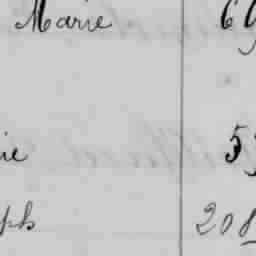 Marie 69
ie 55
ph 208